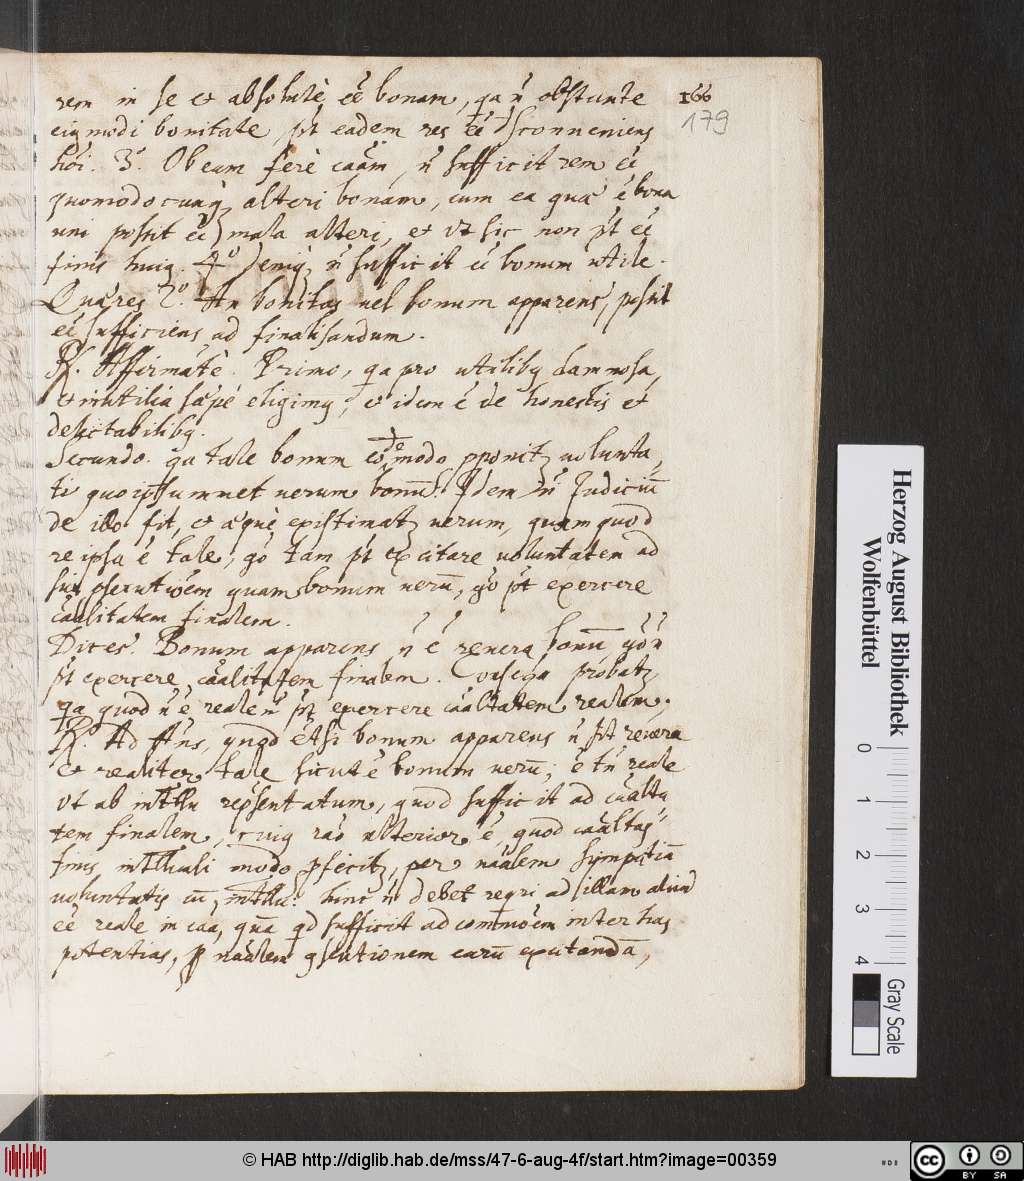 rem in se et absolutè eē bonam, qa n̄ obstante
eiqmodi bonitate, pt eadem res eē disconueniens
hōi. 3º. Ob eam ferè caām, n̄ sufficit rem eē
quomodocunq alteri bonam, cum ea quae ē bona
uni possit eē mala alteri, et ut sic non pt eē
finis huiq. 4º Deniq n̄ sufficit eē bonum utile.
Quares 2º. An bonitas uel bonum apparens, possit
eē sufficiens ad finalisandum.
R. Affirmatè. Primo, qa pro utilibq damnosa,
et inutilia saepè eligimq, et idem ē de honestis et
delectabilibq.
Secundo. qa tale bonum eodē modo pponitz uolunta-
ti quo ipsummet uerum bonū. Idem n̄ Judiciū
de illo fit, et aequè existimatz uerum, quam quod
reipsa ē tale, gō tam pt excitare uoluntatem ad
sui psecutiōem quam bonum uerū, gō pt exercere
caālitatem finalem.
Dices. Bonum apparens n̄ ē reuera bonū gō n̄
pt exercere caālitatem finalem. Conseqa probatz
qa quod n̄ ē reale n̄ pt exercere caālitatem realem.
R. Ad Ans, quod etsi bonum apparens n̄ sit reuera
et realiter tale sicut ē bonum uerū; ē tn̄ reale
ut ab intllu repsentatum, quod sufficit ad caālita
tem finalem, cuiq rāo ulterior ē, quod caālitas
finis intlluali modo pficitz, per nāalem sympatiā
uoluntatis cū intllu: hinc n̄ debet reqri ad illam aliud
eē reale in caā, quā qd sufficit ad commōem inter has
potentias, p nāalem consecutionem earū excitandā,
166
179
Herzog August Bibliothek
Wolfenbüttel
0 1 2 3 4
Gray Scale
© HAB http://diglib.hab.de/mss/47-6-aug-4f/start.htm?image=00359
cc BY SA